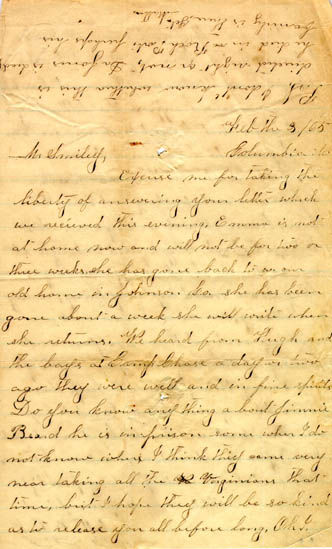 P.S. I don't know whether this is
directed right or not, Dr Jones is dead
he died in a Rock
family is
Feb the 3/65
Mr Smiley, Columbia
Excuse me for taking the
liberty of answering your letter which
we recieved this evening. Emma is not
at home now and will not be for two or
three weeks. she has gone back to our
old home in Johnson Co, she has been
gone about a week she will write when
she returns. We heard from Hugh and
the boys at Camp Chase a day or two
ago they were well and in fine spirits
Do you know anything about Jimmie
Beard he is in prison some wher I do
not know where I think they came very
near taking all the Virginians that
time, but I hope they will be so kind
as to release you all before long,